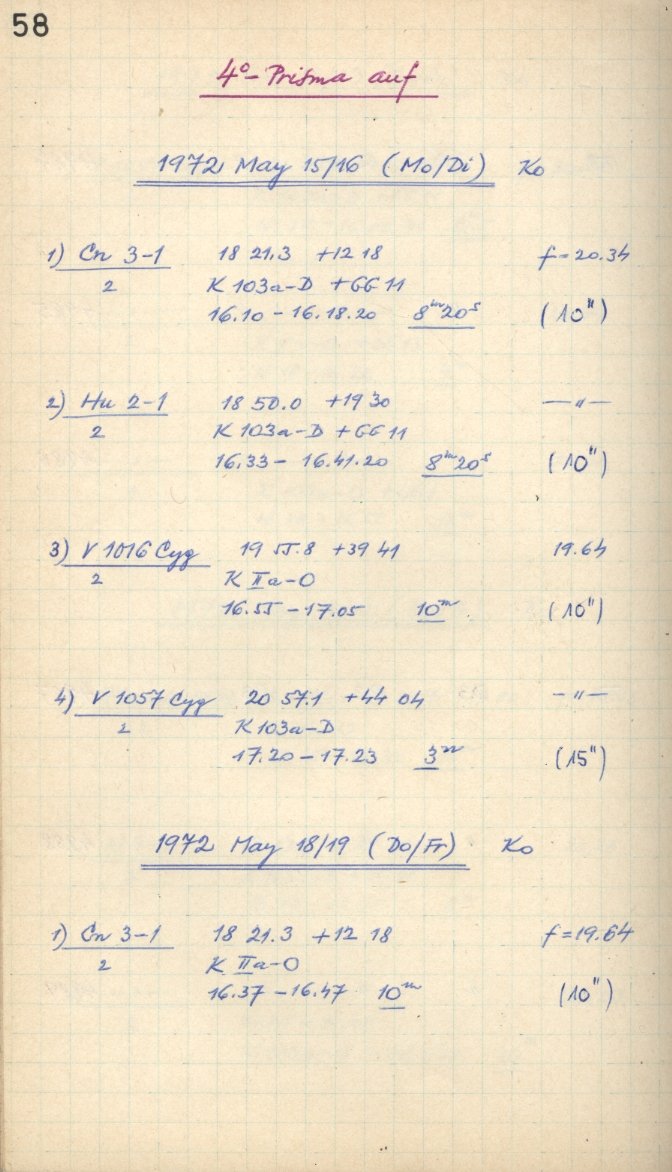 58
4°-Prisma auf
1972 May 15/16 (Mo/Di) Ko
1) Cn 3-1 18 21.3 +12 18 f=20.34
2 K 103a-D + GG 11
16.10 - 16.18.20 8ᵐ20ˢ (10")
2) Hu 2-1 18 50.0 +19 30 —"—
2 K 103a-D + GG 11
16.33 - 16.41.20 8ᵐ20ˢ (10")
3) V 1016 Cyg 19 55.8 +39 41 19.64
2 K IIa-O
16.55 - 17.05 10ᵐ (10")
4) V 1057 Cyg 20 57.1 +44 04 —"—
2 K 103a-D
17.20 - 17.23 3ᵐ (15")
1972 May 18/19 (Do/Fr) Ko
1) Cn 3-1 18 21.3 +12 18 f=19.64
2 K IIa-O
16.37 - 16.47 10ᵐ (10")